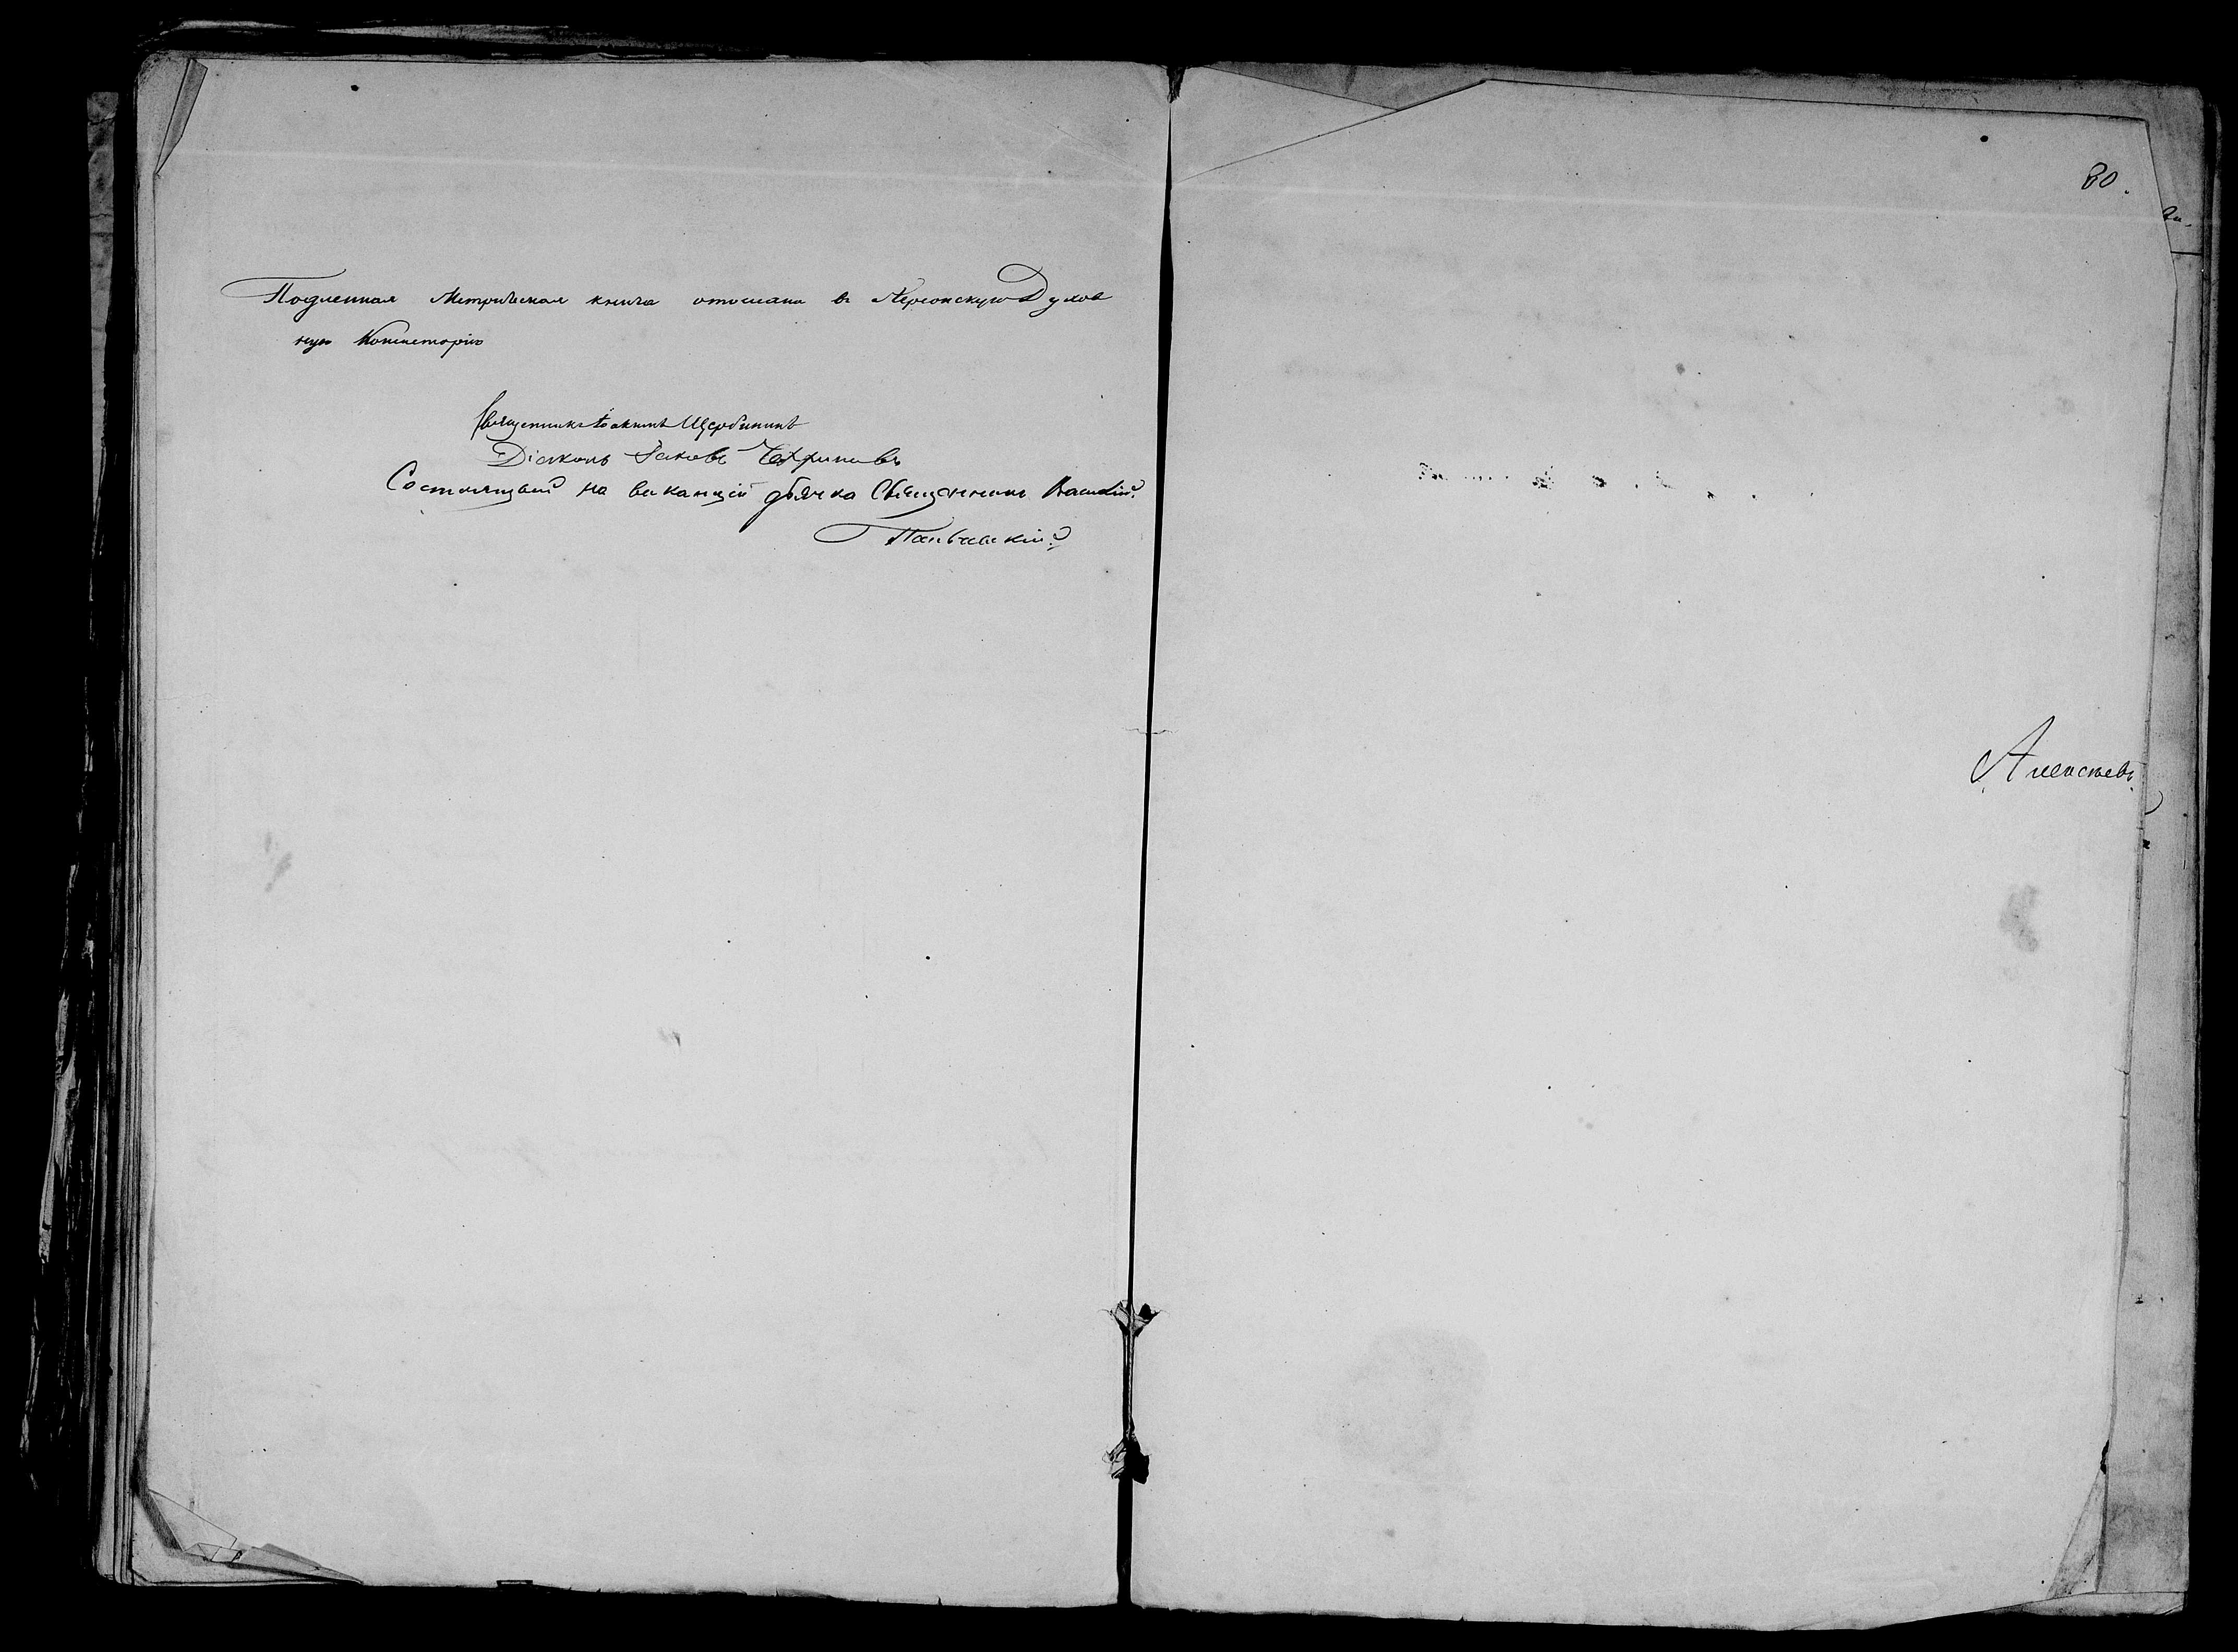 Подленная Метрическая книга отослана въ Херсонскую Духов
ную Консисторію
Священникъ Іоакимъ Щербининъ
Діаконъ Іаковъ
Состоящый на ваканціи дьячка Священникъ Василій
80.
Алексѣевъ